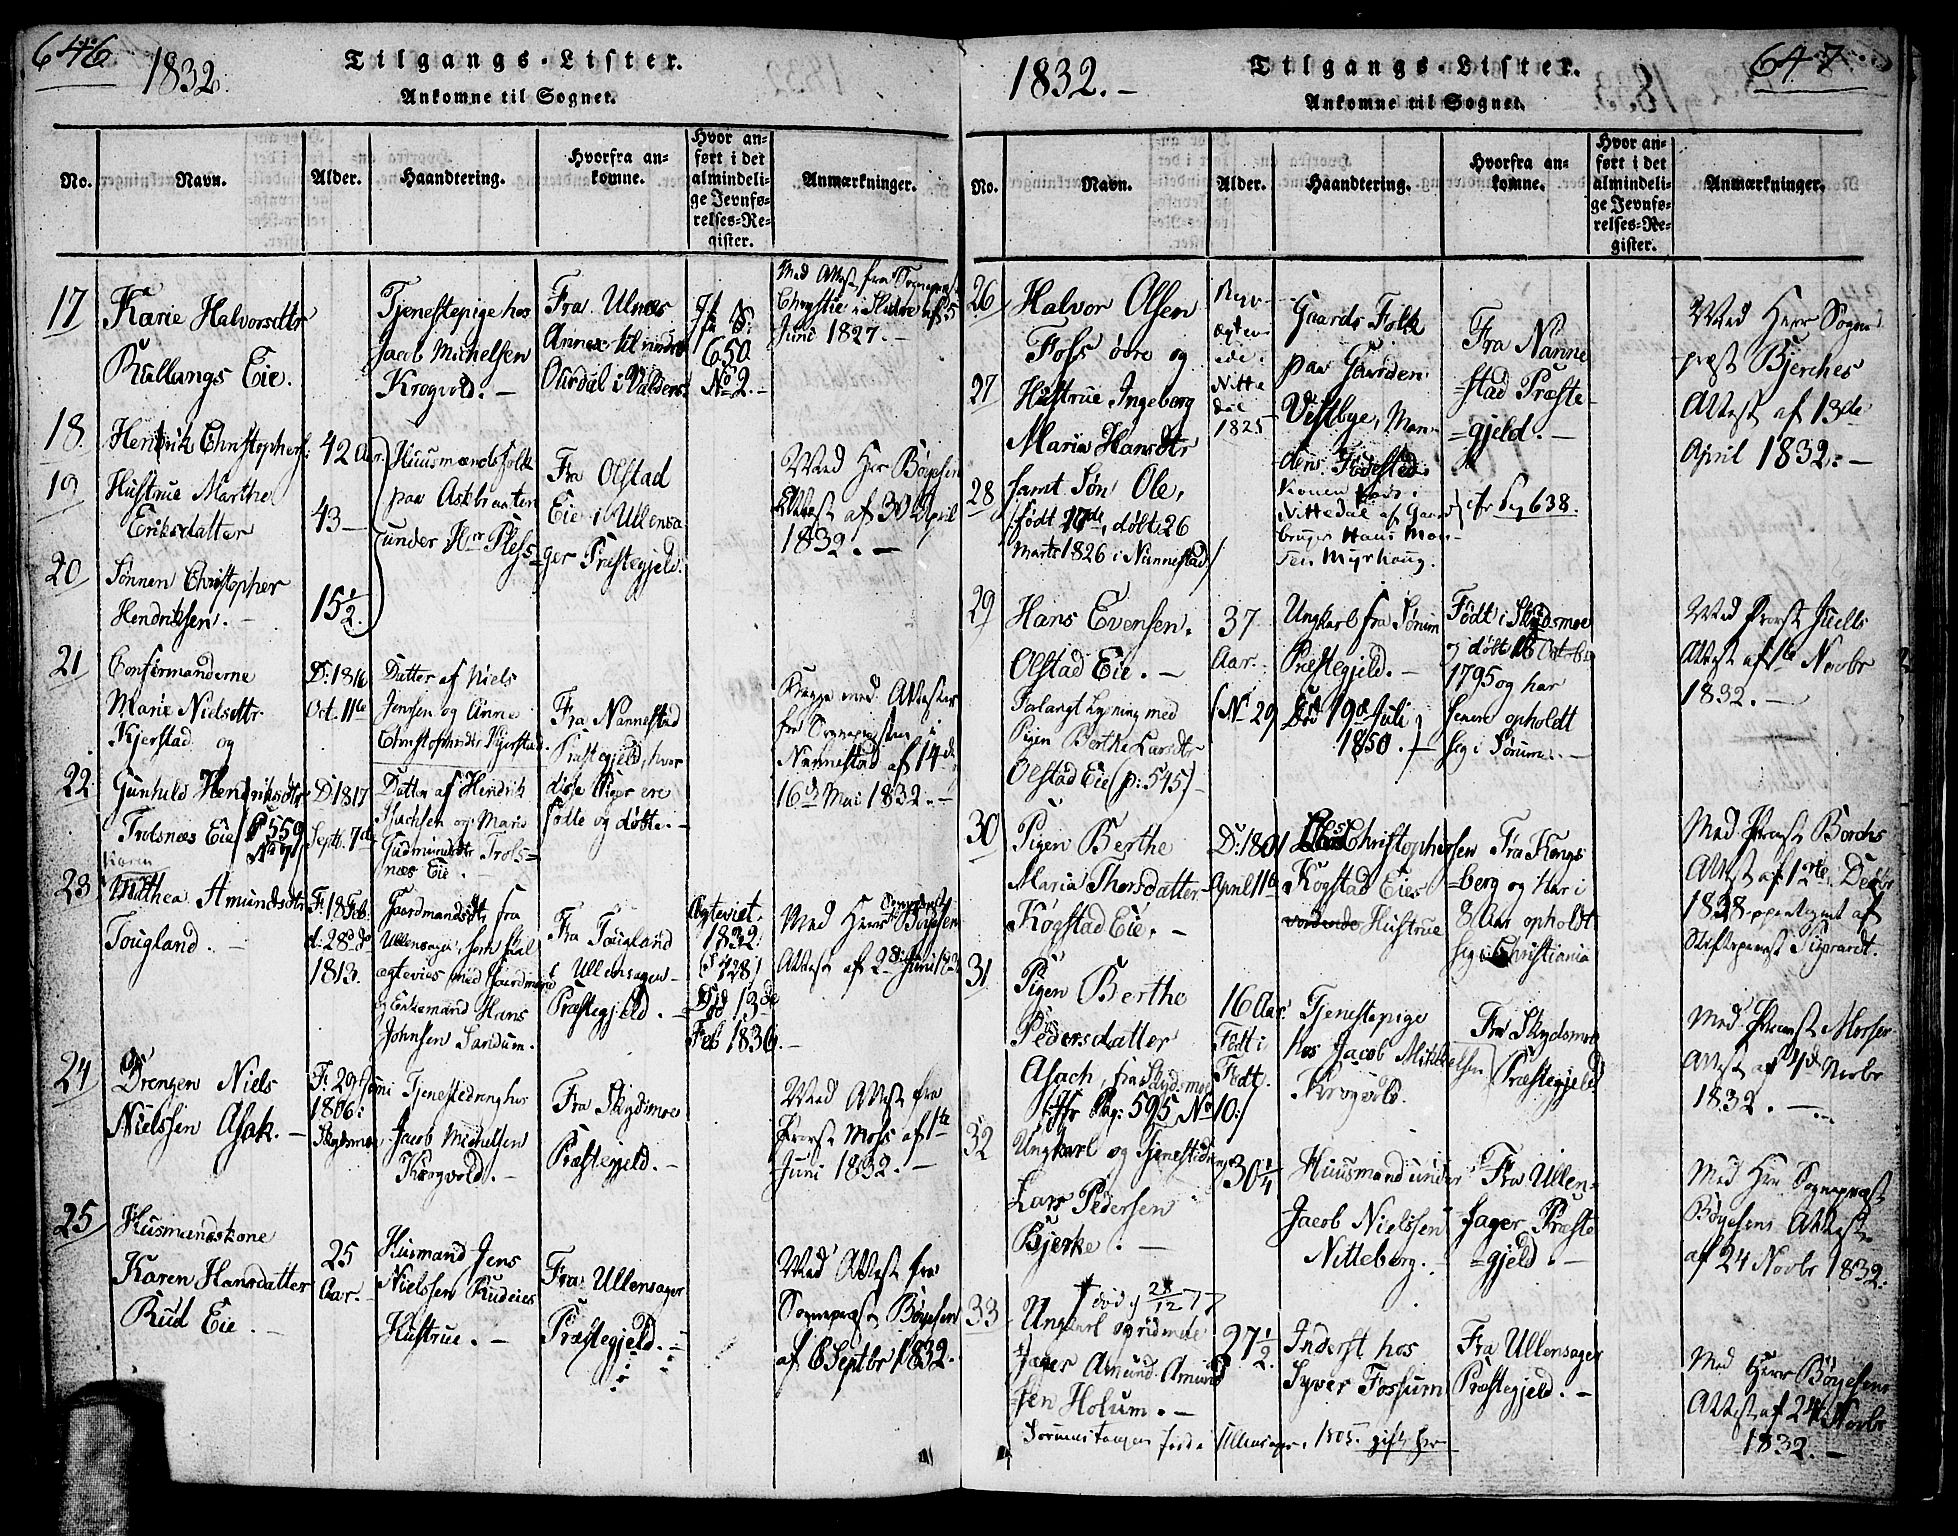 646
1832.
Tilgangs-Lister.
Ankomne til Sognet.
No.
Navn.
Alder.
Haandtering.
Hvorfra an-
komne.
Hvor an-
ført i det
almindeli-
ge Jevnfø-
relses-Re-
gister.
Anmærkninger.
17
Karie Halvorsdtr
Rullangs Eie.
Tjenestepige hos
Jacob Michelsen
Krogvold. -
Fra Ulnæs
Annex til nordre
Ourdal i Valders
650
No 2. -
Med Attest fra Sognepræst
Chrystie i Slidre af 5
Juni 1827. -
18.
Hendrik Christophers:
42 Aar.
Huusmandsfolk
paa Askbraaten
under Hr Pless-
Fra Olstad
Eie i Ullensa
ger Præstegjeld.
Med Hrr Bøyesen
Attest af 30 April
1832. -
19
Hustrue Marthe
Eriksdatter
43 -
20
Sønnen Christopher
Hendriksen. -
15 1/2.
21
Confirmanderne
Marie Nielsdtr.
Kjerstad og
D: 1816
Oct. 11te
Datter af Niels
Jensen og Anne
Christophersdtr Kjerstad.
Fra Nannestad
Præstegjeld, hvor
disse Piger ere
fødte og døbte. -
Begge med Attester
fra Sognepræsten i
Nannestad af 14de
16de Mai 1832. -
22
Gunhild Hendriksdtr
Trolsnæs Eie (P 559
No 7)
D 1817
Septb. 7de
Datter af Hendrik
Isachsen og Marie
Gudmundsdtr Trols-
næs Eie. -
23
Karen
Mathea Amundsdtr
Tougland. -
F: 18 Feb.
d: 28de do
1813.
Gaardmandsdtr fra
Ullensager, som skal
ægtevies med Gaardmand
og Enkemand Hans
Johnsen Sandum. -
Fra Tougland
i Ullensagers
Præstegjeld. -
Ægteviet
1832
(P 428)
Død 13de
Feb 1836. -
Med Herr Bøyesens
Attest af 28 Juni 1832
24
Drengen Niels
Nielssen Asak. -
F: 29 Juni
1806:
Skydsmoe
Tjenestedreng hos
Jacob Michelsen
Krogvold. -
Fra Skydsmoe
Præstegjeld. -
Med Attest fra
Provst Moss af 1te
Juni 1832. -
25
Husmandskone
Karen Hansdatter
Rud Eie. -
25
Aar. -
Husmand Jens
Nielssen Rudeies
Hustrue. -
Fra Ullensager
Præstegjeld. -
Med Attest fra
Sognepræst Bøyesen
af 6 Septbr 1832. -
647
1832. -
Tilgangs-Lister.
Ankomne til Sognet.
No.
Navn.
Alder.
Haandtering.
Hvorfra an-
komne.
Hvor an-
ført i det
almindeli-
ge Jevnfø-
relses-Re-
gister.
Anmærkninger.
26
Halvor Olsen
Foss övre og
Nitte
dal
1825
Gaards Folk
paa Gaarden
Vestbye, Man-
dens Födested.
Konen
Nittedal af Gaard
bruger Hans Mon-
sen Myrhaug.
Fra Nanne
=stad Præste-
=gjeld. -
cfr Pag 638.
Med Herr Sogne-
præst Bjerches
Attest af 13de
April 1832. -
27
Hustrue Ingeborg
Maria Hansdtr
28
samt Søn Ole,
født 17de, døbt 26
Marts 1826 i Nannestad/
29
Hans Evensen.
Olstad Eie. -
Forlangt Lysning med
Pigen Berthe Larsdtr
Olstad Eie (p: 545)
37
Aar. -
(No 29
Ungkarl fra Sörum
Præstegjeld. -
Död 19de Juli
1850. -
Født i Skydsmoe
og døbt 16 Oct
1795 og har
senere opholdt
seg i Sörum. -
Med Provst Juells
Attest af 16 Novbr
1832. -
30
Pigen Berthe
Maria Thorsdatter
Kogstad Eie. -
D: 1801
April 11te
Christophersen
Kogstad Eies
vordende Hustrue
Fra Kongs
=berg og har i
8 Aar opholdt
seg i Christiania
Med Præst Borchs
Attest af 12te Decbr
1828 paategnet af
31
Pigen Berthe
Pedersdatter
Asach, fra Skydsmoe
(cfr Pag: 595 No 10:/
16 Aar.
Født i
Fedt.
Tjenestepige
hos Jacob Mikkelsen
Krogvold.
Fra Skydsmoe
Præstegjeld
Med Provst Mosses
Attest af 7de Novbr
1832. -
32
Ungkarl og Tjenestedreng
Lars Pedersen
Bjerke. -
30 1/4
Huusmand under
Jacob Nielssen
Nitteberg. -
Fra Ullen-
sager Præste
=gjeld. -
Med Hrr Sognepræst
Bøyesens Attest
af 24 Novbr 1832.
33
død 28/12 77
Ungkarl og ridende
Jæger Amund Amund
sen Holum. -
27 1/2
Inderst hos
Syver Fossum
Fra Ullensager
Præstegjeld. -
Med Herr Bøyesens
Attest af 24 Novbr
1832. -
født i Ullensager. 1805. gift